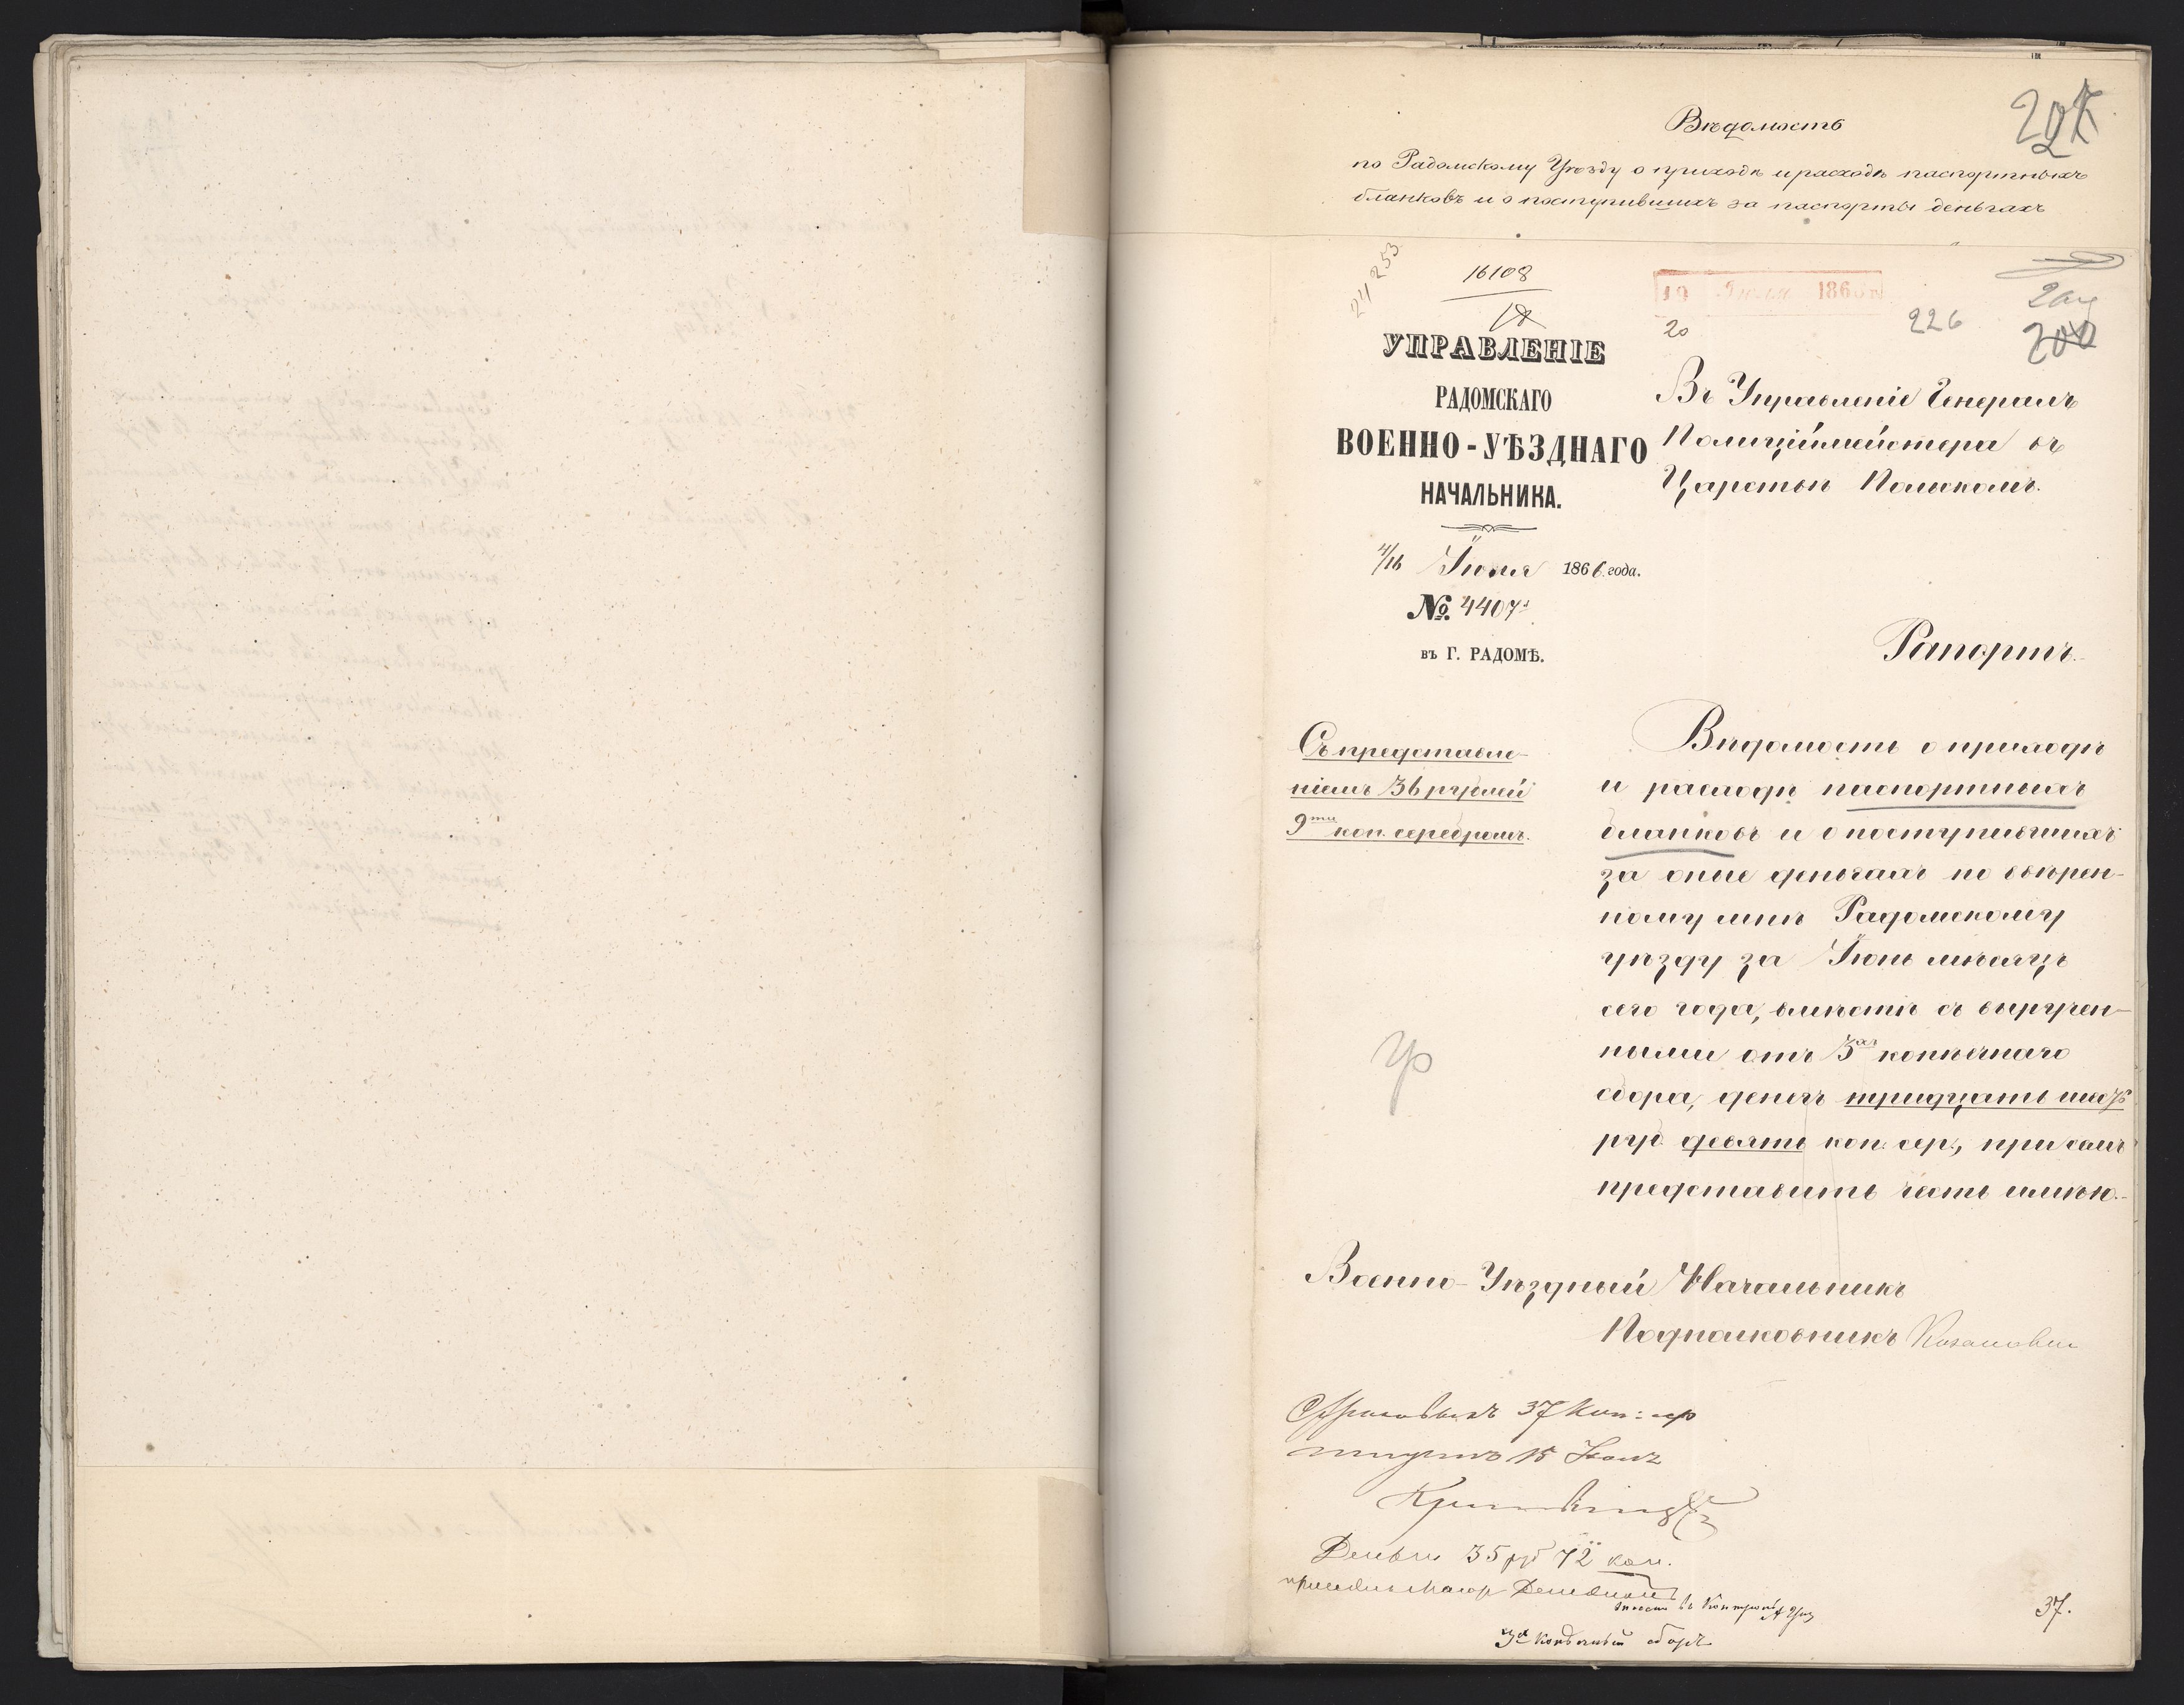 Вѣдомость
по Радомскому Уѣзду о приходѣ и расходѣ паспортныхъ
бланковъ и о поступившихъ за паспорты деньгахъ
24253
16108
18
19 Июля 186
20
226
200
УПРАВЛЕНІЕ
РАДОМСКАГО
ВОЕННО-УѢЗДНАГО
НАЧАЛЬНИКА.
4/16 Іюля 1866 года.
№ 4407
въ Г. РАДОМѢ.
Въ Управленіе Генералъ
Полиціймейстера въ
Царствѣ Польскомъ.
Рапортъ.
Съ представле-
ніемъ 36 рублей
9ти коп. серебромъ.
Вѣдомость о приходѣ
и расходѣ паспортныхъ
бланковъ и о поступившихъ
за оные деньгахъ по ввѣрен-
ному мнѣ Радомскому
уѣзду за Іюнь мѣсяцъ
сего года, вмѣстѣ съ выручен-
ными отъ 3хъ копѣечнаго
сбора, денегъ тридцать шесть
руб. девять коп. сер., при семъ
представить честь имѣю.
Военно-Уѣздный Начальникъ
Подполковникъ
37 Коп: сер
15
Деньги 35 руб 72 коп.
принялъ Маіор
внесен въ Контроль
3х Копѣечный сборъ
37.